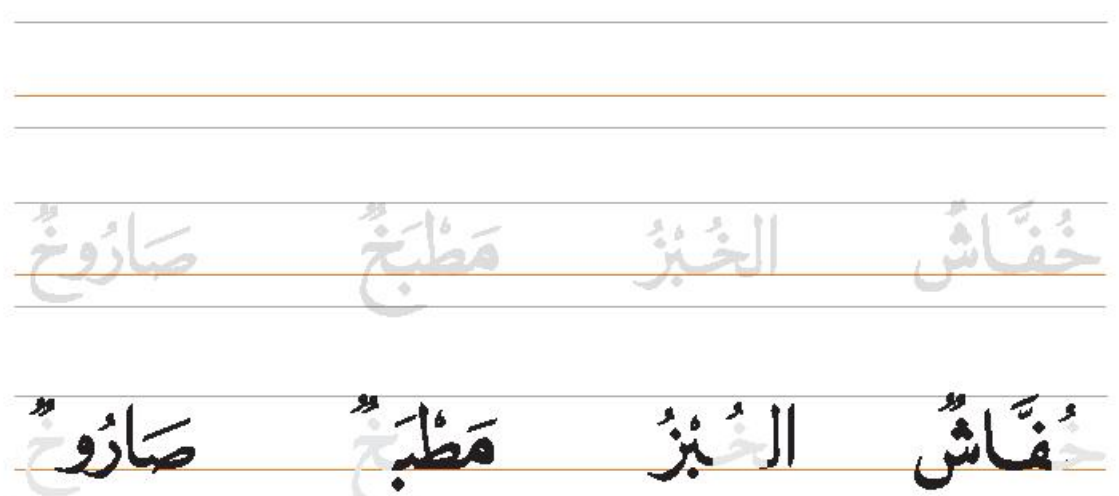 خُفَّاشٌ الخُبْزُ مَطْبَخٌ صَارُوخٌ
خُفَّاشٌ الخُبْزُ مَطْبَخٌ صَارُوخٌ